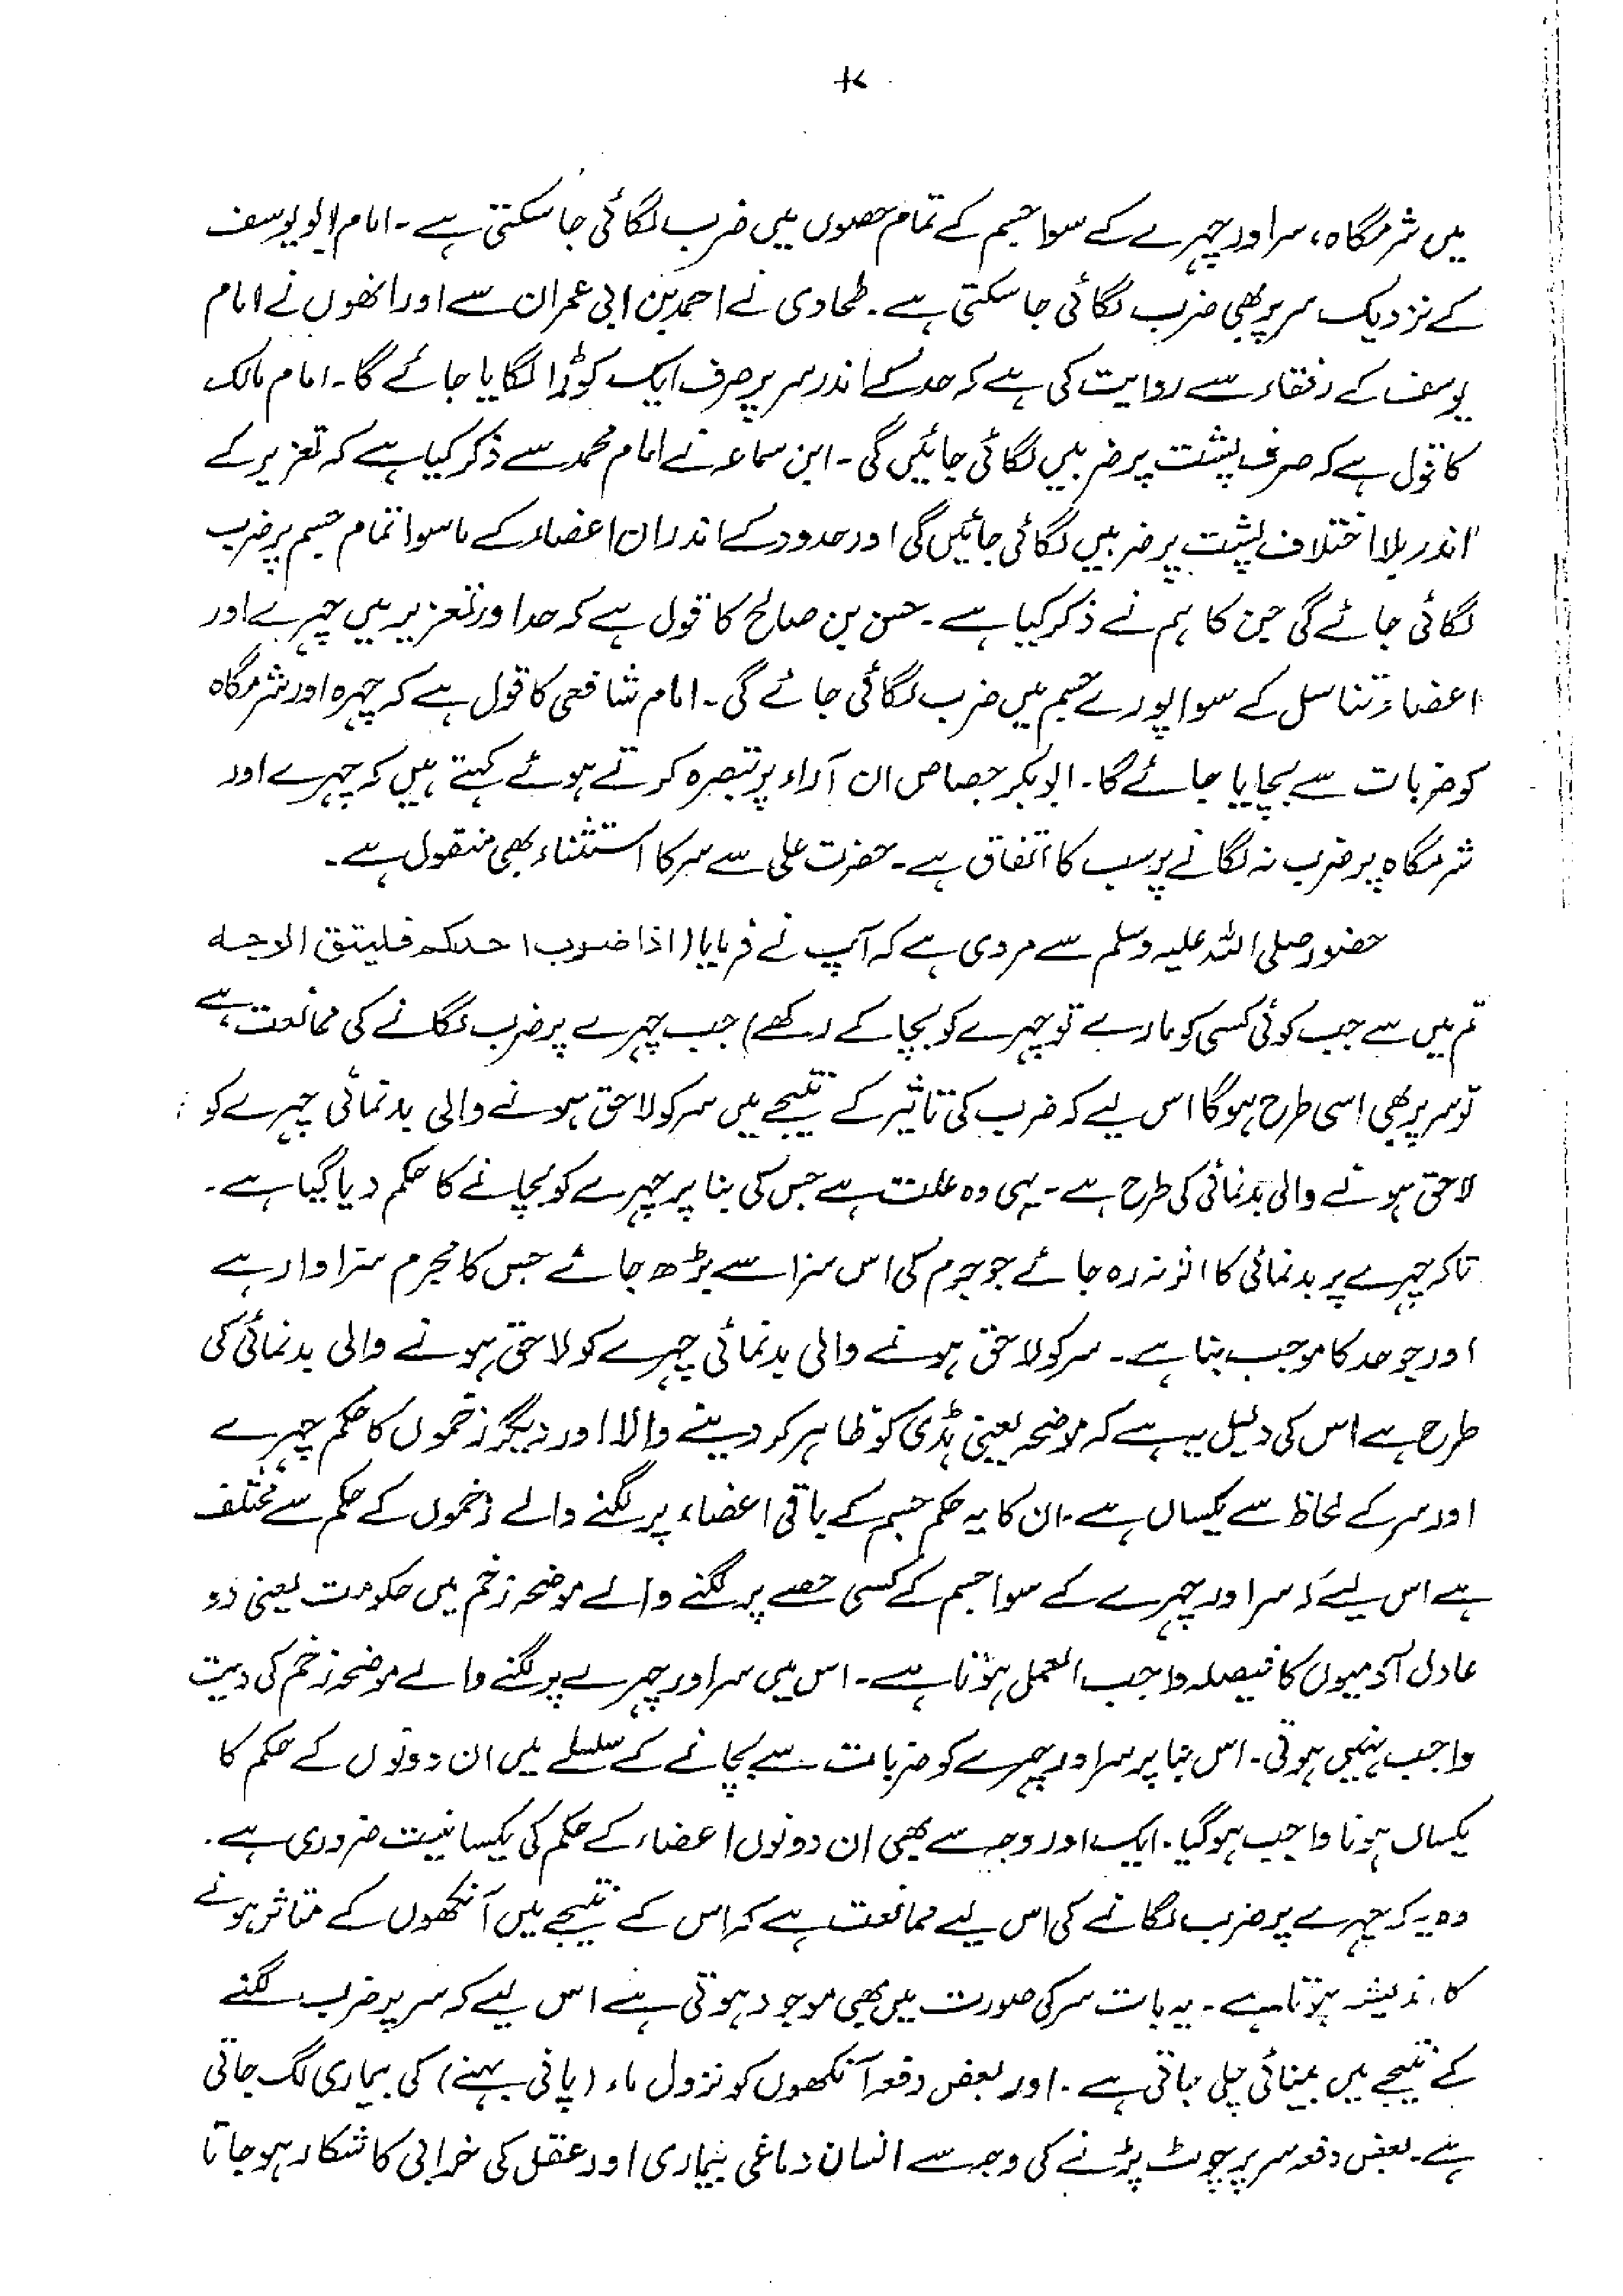 میں شرمگاہ، سر اور چہرے کے سوا جسم کے تمام حصوں میں ضرب لگائی جا سکتی ہے۔ امام ابو یوسف
کے نزدیک سر پر بھی ضرب لگائی جا سکتی ہے۔ طحاوی نے احمد بن ابی عمران سے اور انھوں نے امام
یوسف کے رفقاء سے روایت کی ہے کہ حد کے اندر سر پر صرف ایک کوڑا لگایا جائے گا۔ امام مالک
کا قول ہے کہ صرف پشت پر ضربیں لگائی جائیں گی۔ ابن سماعہ نے امام محمد سے ذکر کیا ہے کہ تعزیر کے
اندر بلا اختلاف پشت پر ضربیں لگائی جائیں گی اور حدود کے اندر ان اعضاء کے ماسوا تمام جسم پر ضرب
لگائی جائے گی جن کا ہم نے ذکر کیا ہے۔ حسن بن صالح کا قول ہے کہ حد اور تعزیر میں چہرے اور
اعضاء تناسل کے سوا پورے جسم میں ضرب لگائی جائے گی۔ امام شافعی کا قول ہے کہ چہرہ اور شرمگاہ
کو ضربات سے بچایا جائے گا۔ ابو بکر جصاص ان آراء پر تبصرہ کرتے ہوئے کہتے ہیں کہ چہرے اور
شرمگاہ پر ضرب نہ لگانے پر سب کا اتفاق ہے۔ حضرت علی سے سر کا استثناء بھی منقول ہے۔
حضور صلی اللہ علیہ وسلم سے مروی ہے کہ آپ نے فرمایا (اذا ضرب احدکم فلیتق الوجہ
تم میں سے جب کوئی کسی کو مارے تو چہرے کو بچا کے رکھے) جب چہرے پر ضرب لگانے کی ممانعت ہے
تو سر پر بھی اسی طرح ہوگا اس لیے کہ ضرب کی تاثیر کے نتیجے میں سر کو لاحق ہونے والی بدنمائی چہرے کو
لاحق ہونے والی بدنمائی کی طرح ہے۔ یہی وہ علت ہے جس کی بنا پر چہرے کو بچانے کا حکم دیا گیا ہے۔
تاکہ چہرے پر بدنمائی کا اثر نہ رہ جائے جو جرم کی اس سزا سے بڑھ جائے جس کا مجرم سزاوار ہے
اور جو حد کا موجب بنا ہے۔ سر کو لاحق ہونے والی بدنمائی چہرے کو لاحق ہونے والی بدنمائی کی
طرح ہے اس کی دلیل یہ ہے کہ موضحہ یعنی ہڈی کو ظاہر کر دینے والا اور دیگر زخموں کا حکم چہرے
اور سر کے لحاظ سے یکساں ہے۔ ان کا یہ حکم جسم کے باقی اعضاء پر لگنے والے زخموں کے حکم سے مختلف
ہے اس لیے کہ سر اور چہرے کے سوا جسم کے کسی حصے پر لگنے والے موضحہ زخم میں حکومت یعنی دو
عادل آدمیوں کا فیصلہ واجب العمل ہوتا ہے۔ اس میں سر اور چہرے پر لگنے والے موضحہ زخم کی دیت
واجب نہیں ہوتی۔ اس بنا پر سر اور چہرے کو ضربات سے بچانے کے سلسلے میں ان دونوں کے حکم کا
یکساں ہونا واجب ہو گیا۔ ایک اور وجہ سے بھی ان دونوں اعضاء کے حکم کی یکسانیت ضروری ہے۔
وہ یہ کہ چہرے پر ضرب لگانے کی اس لیے ممانعت ہے کہ اس کے نتیجے میں آنکھوں کے متاثر ہونے
کا اندیشہ ہوتا ہے۔ یہ بات سر کی صورت میں بھی موجود ہوتی ہے اس لیے کہ سر پر ضرب لگنے
کے نتیجے میں بینائی چلی جاتی ہے۔ اور بعض دفعہ آنکھوں کو نزول ماء (پانی بہنے) کی بیماری لگ جاتی
ہے۔ بعض دفعہ سر پر چوٹ پڑنے کی وجہ سے انسان دماغی بیماری اور عقل کی خرابی کا شکار ہو جاتا